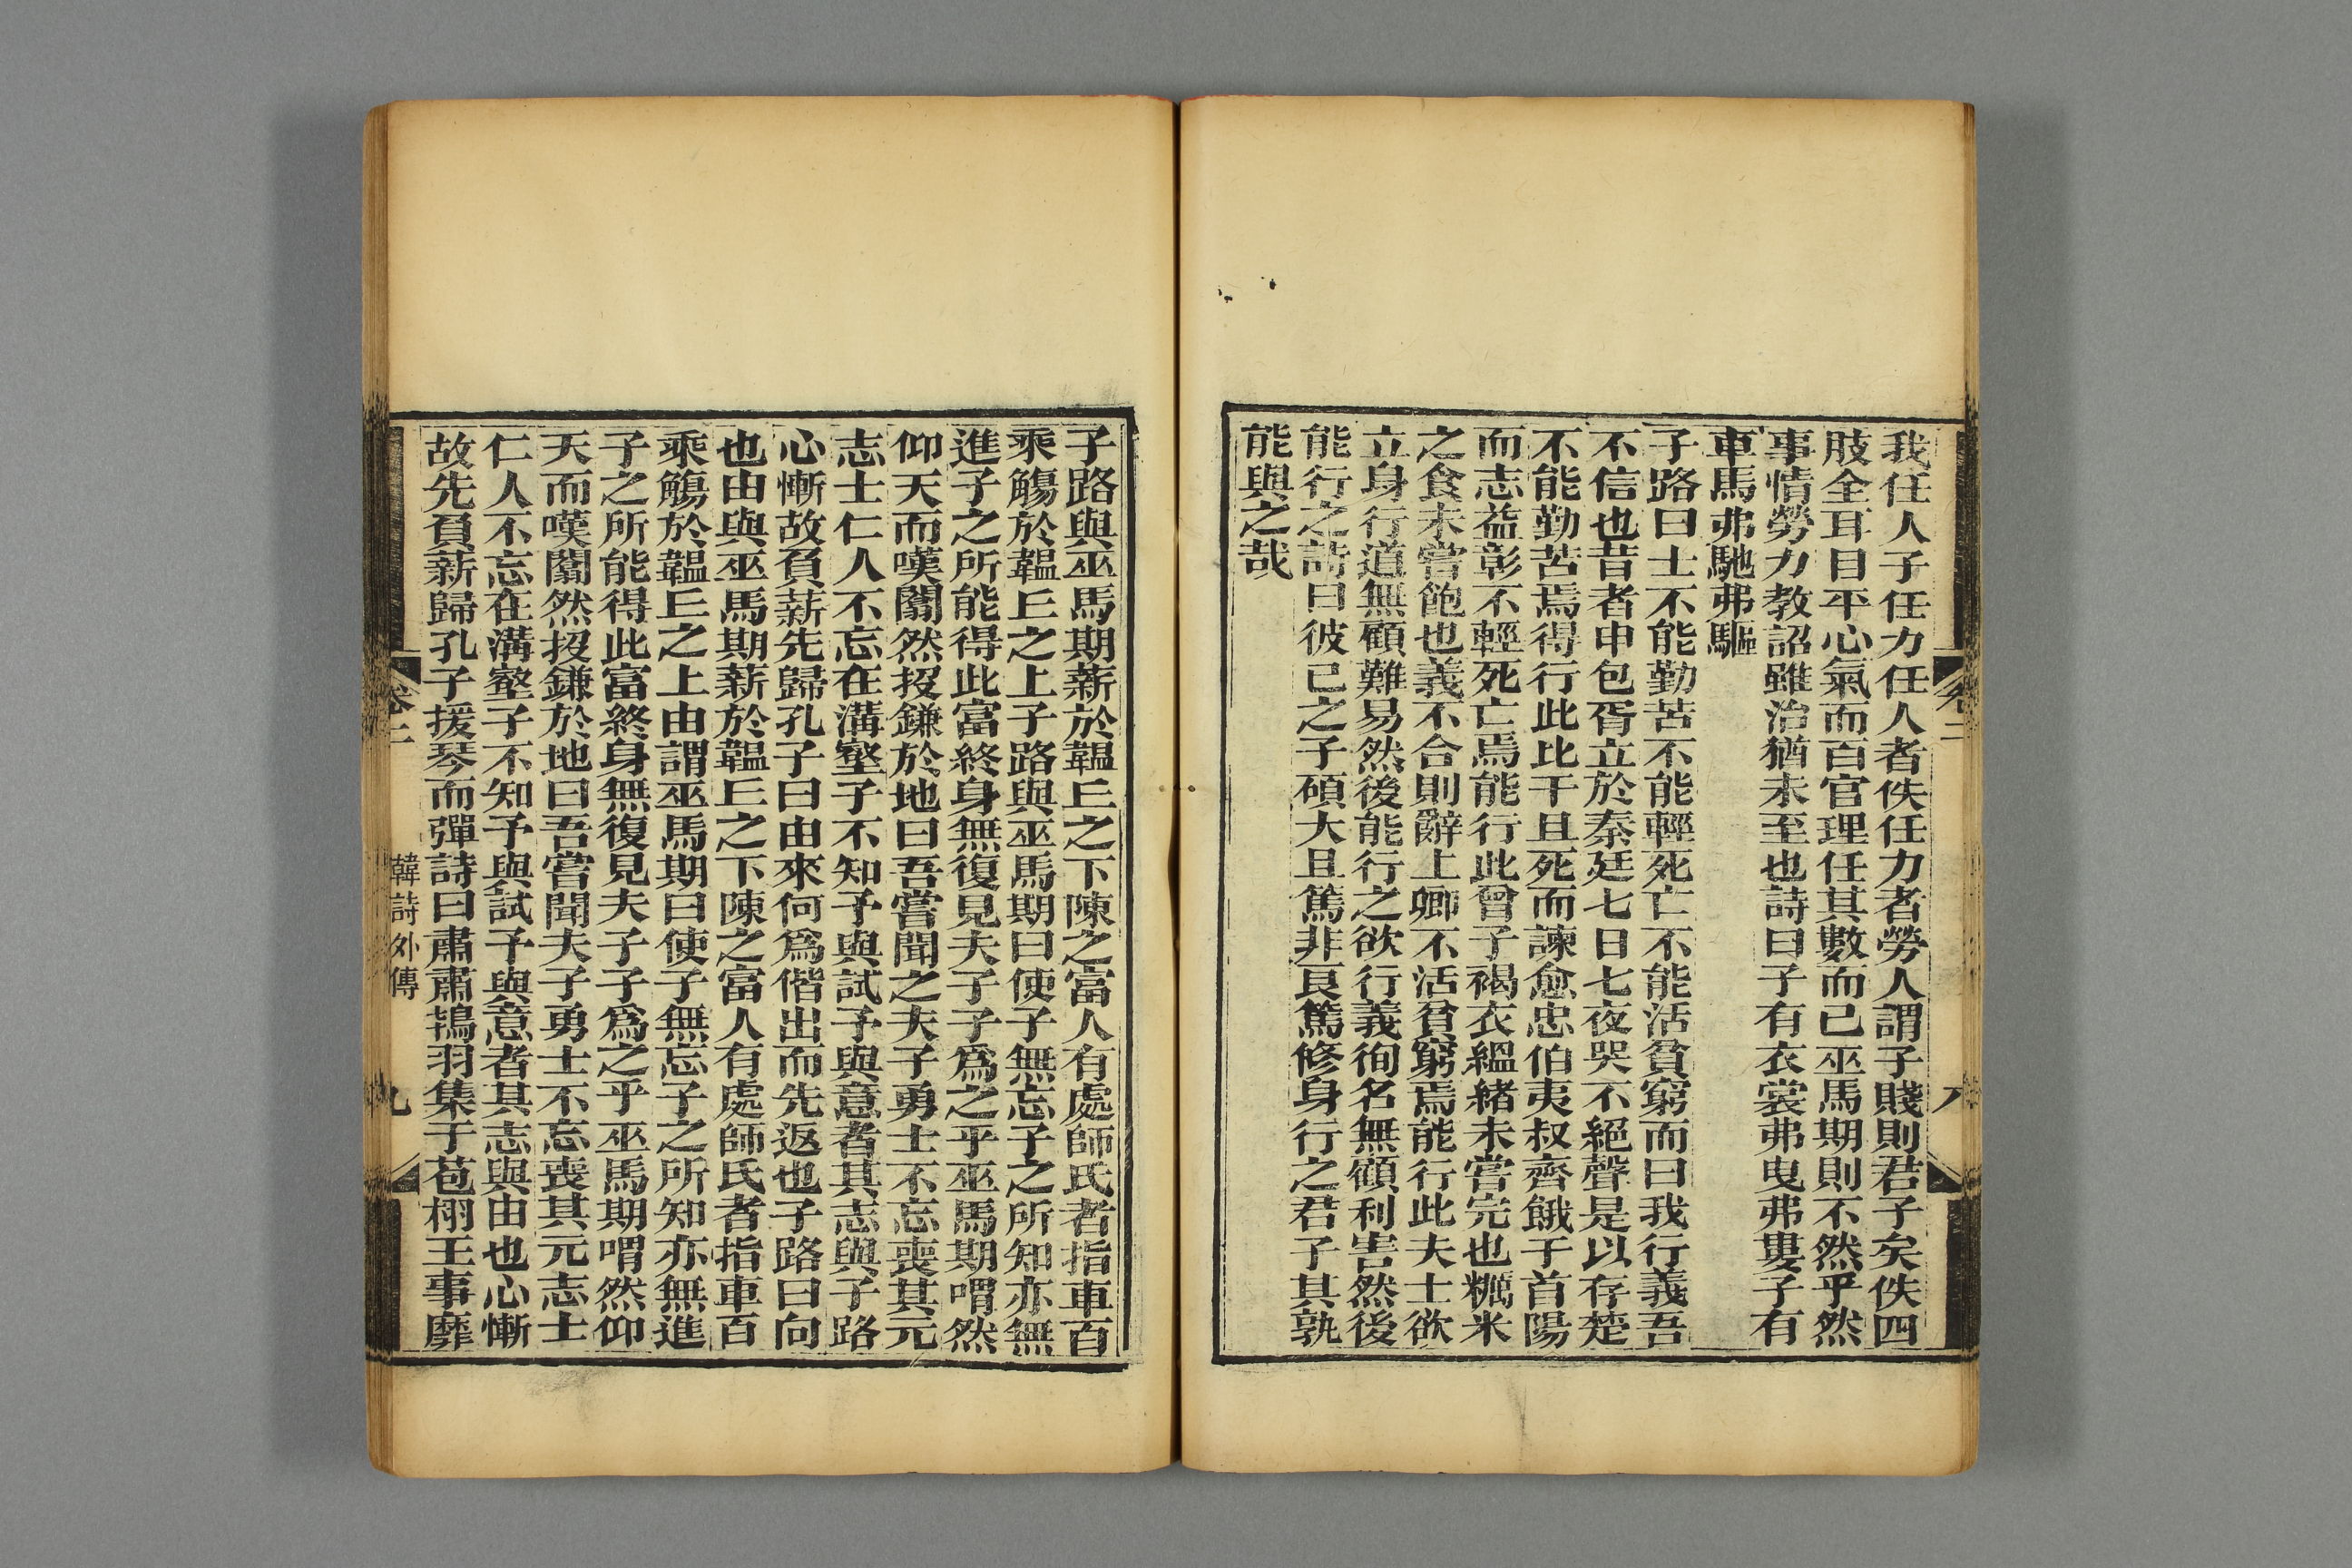 我任人子任力任人者佚任力者勞人謂子賤則君子矣佚四
肢全耳目平心氣而百官理任其數而已巫馬期則不然乎然
事情勞力教詔雖治猶未至也詩曰子有衣裳弗曳弗婁子有
車馬弗馳弗驅
子路曰士不能勤苦不能輕死亡不能活貧窮而曰我行義吾
不信也昔者申包胥立於秦廷七日七夜哭不絕聲是以存楚
不能勤苦焉得行此比干且死而諫愈忠伯夷叔齊餓于首陽
而志益彰不輕死亡焉能行此曾子褐衣縕緒未嘗完也糲米
之食未嘗飽也義不合則辭上卿不活貧窮焉能行此夫士欲
立身行道無顧難易然後能行之欲行義徇名無顧利害然後
能行之詩曰彼已之子碩大且篤非良篤修身行之君子其孰
能與之哉
卷二
八
子路與巫馬期薪於韞丘之下陳之富人有處師氏者指車百
乘觴於韞丘之上子路與巫馬期曰使子無忘子之所知亦無
進子之所能得此富終身無復見夫子子爲之乎巫馬期喟然
仰天而嘆闟然投鎌於地曰吾嘗聞之夫子勇士不忘喪其元
志士仁人不忘在溝壑子不知予與試予與意者其志與子路
心慚故負薪先歸孔子曰由來何爲偕出而先返也子路曰向
也由與巫馬期薪於韞丘之下陳之富人有處師氏者指車百
乘觴於韞丘之上由謂巫馬期曰使子無忘子之所知亦無進
子之所能得此富終身無復見夫子子爲之乎巫馬期喟然仰
天而嘆闟然投鎌於地曰吾嘗聞夫子勇士不忘喪其元志士
仁人不忘在溝壑子不知予與試予與意者其志與由也心慚
故先負薪歸孔子援琴而彈詩曰肅肅鴇羽集于苞栩王事靡
卷二
韓詩外傳
九